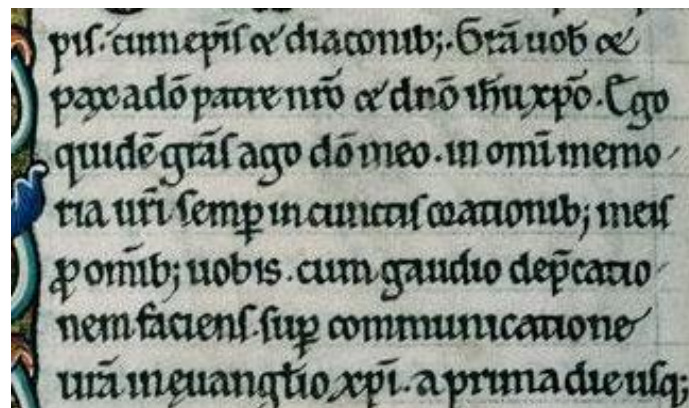 pis. cum ep̄is & diaconib; . Gr̄a uob̄ &
pax a dō patre nr̄o & dn̄o ih̄u xp̄o. Ego
quidē gr̄as ago dō meo. in om̄i memo
ria ur̄i semꝑ in cunctis orationib; meis
ꝓ om̄ib; uobis. cum gaudio dep̄catio
nem faciens. suꝑ communicatione
ur̄a in ęuangłio xp̄i. a prima die usq;